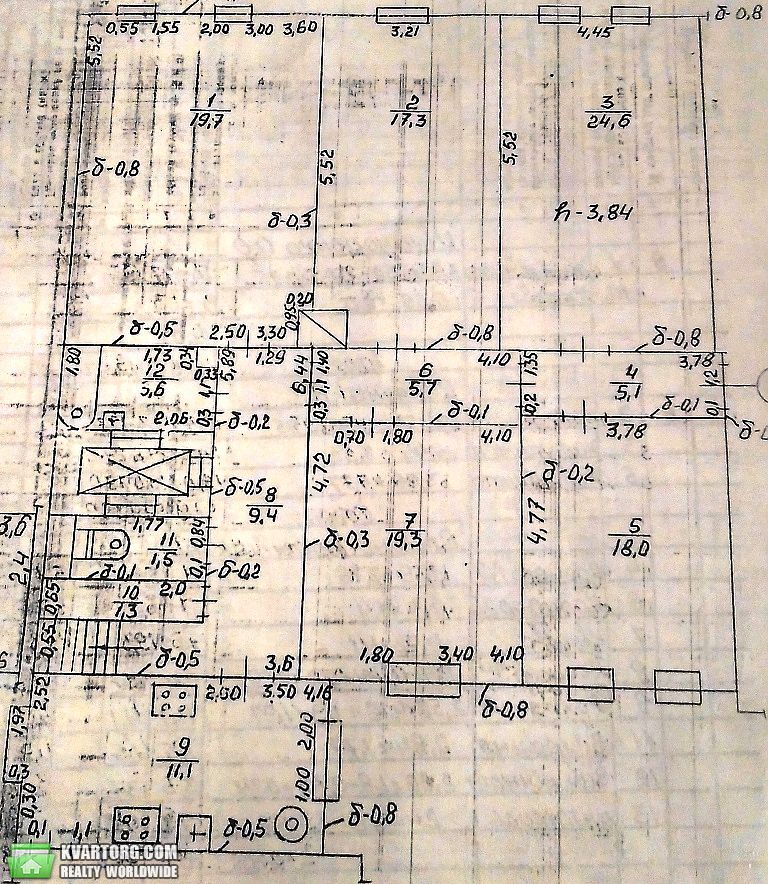 0,55 1,55 2,00 3,00 3,60 3,21 4,45 δ-0,8
5,52
1
19,7
2
17,3
3
24,6
5,52
5,52
δ-0,8
δ-0,3
h-3,84
0,20
0,95
δ-0,5 2,50 3,30 δ-0,8 δ-0,8
1,80 1,73 0,34 5,89 1,29 6,44 1,40 4,10 1,35 3,78
12
5,6
0,33
1,1
6
5,7
4
5,1
1,2
2,06 0,3 δ-0,2 0,3 1,1 δ-0,1 0,2 δ-0,1 0,1
0,70 1,80 4,10 3,78
4,72
δ-0,2
δ-0,5
8
9,4
7
19,3
4,77
5
18,0
3,6
1,77 0,84
11
1,5
δ-0,3
2,4
δ-0,1 0,1 δ-0,2
0,65
10
1,3
2,0
0,55
δ-0,5 3,6 1,80 3,40 4,10
2,52 2,00 3,50 4,16 δ-0,8
1,97
9
11,1
2,00
0,3
1,00
0,30
0,1 1,1 δ-0,5 δ-0,8
KVARTORG.COM
REALTY WORLDWIDE